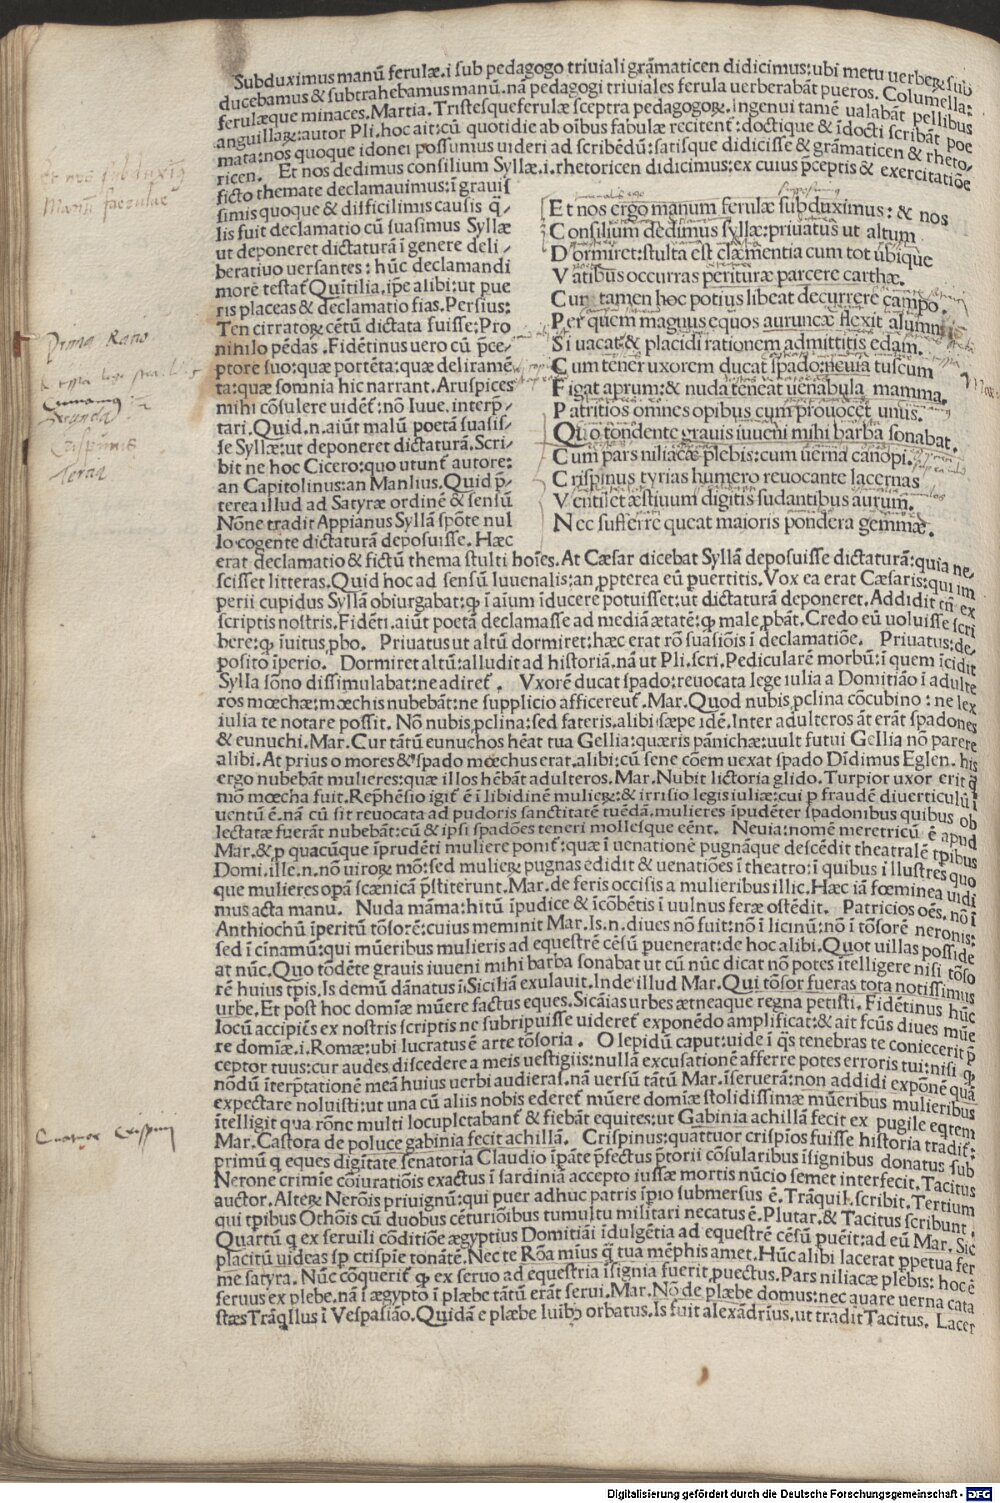 Subduximus manū ferulæ.i sub pedagogo triuiali grāmaticen didicimus:ubi metu uerbeꝝ sub
ducebamus & subtrahebamus manū.nā pedagogi triuiales ferula uerberabāt pueros. Columella:
ferulæque minaces.Martia. Tristesqueferulæ sceptra pedagogoꝝ. Ingenui tamē ualabāt pellibus
anguillaꝝ:autor Pli.hoc ait:cū quotidie ab oībus fabulæ recitent̄:doctique & īdocti scribāt poe
mata:nos quoque idonei possumus uideri ad scribēdū:satisque didicisse & grāmaticen & rheto/
ricen. Et nos dedimus consilium Syllæ.i.rhetoricen didicimus:ex cuius p̄ceptis & exercitatiōe
ficto themate declamauimus:ī grauiſ
simis quoque & difficilimis causis q̄/
lis fuit declamatio cū suasimus Syllæ
ut deponeret dictaturā ī genere deli/
beratiuo uersantes: hūc declamandi
morē testat̄ Quītilia.ip̄e alibi:ut pue
ris placeas & declamatio fias.Persius:
Ten cirratoꝝ cētū dictata fuisse:Pro
nihilo pēdas .Fidētinus uero cū p̄ce/
ptore suo:quæ portēta:quæ deliramē
ta:quæ somnia hic narrant.Aruspices
mihi cōsulere uidēt̄:nō Iuue.interp̄/
tari.Quid.n.aiūt malū poetā suasis/
se Syllæ:ut deponeret dictaturā.Scri/
bit ne hoc Cicero:quo utunt̄ autore:
an Capitolinus:an Manlius.Quid p̄/
terea illud ad Satyræ ordinē & sensū
Nōne tradit Appianus Syllā spōte nul
lo cogente dictaturā deposuisse. Hæc
Et nos ergo manum ferulæ subduximus: & nos
Consilium dedimus syllæ:priuatus ut altum
Dormiret:stulta est clæmentia cum tot ubique
Vatibus occurras perituræ parcere carthæ.
Cur tamen hoc potius libeat decurrere campo.
Per quem magnus equos auruncæ flexit alumnus
Si uacat:& placidi rationem admittitis edam.
Cum tener uxorem ducat spado:neuia tuscum
Figat aprum:& nuda teneat uenabula mamma.
Patritios omnes opibus cum prouocet unus.
Quo tondente grauis iuueni mihi barba sonabat.
Cum pars niliacæ plebis:cum uerna canopi.
Crispinus tyrias humero reuocante lacernas
Ventilet æstiuum digitis sudantibus aurum.
Nec sufferre queat maioris pondera gemmæ.
erat declamatio & fictū thema stulti hoīes. At Cæsar dicebat Syllā deposuisse dictaturā:quia ne/
scisset litteras.Quid hoc ad sensū Iuuenalis:an ꝓpterea eū ꝑuertitis.Vox ea erat Cæsaris:qui im
perii cupidus Syllā obiurgabat:ꝙ ī aīum īducere potuisset:ut dictaturā deponeret.Addidit tn̄ ex
scriptis nostris.Fidēti.aiūt poetā declamasse ad mediā ætatē:ꝙ male ꝓbāt.Credo eū uoluisse scri
bere:ꝙ īuitus ꝓbo. Priuatus ut altū dormiret:hæc erat rō suasiōis ī declamatiōe. Priuatus:de/
posito īperio. Dormiret altū:alludit ad historiā.nā ut Pli.scri.Pediculare̅ morbū:ī quem īcidit
Sylla sōno dissimulabat:ne adiret̄. Vxorē ducat spado:reuocata lege iulia a Domitiāo ī adulte
ros mœchæ:mœchis nubebāt:ne supplicio afficereut̄.Mar.Quod nubis ꝓclina cōcubino: ne lex
iulia te notare possit. Nō nubis ꝓclina:sed fateris.alibi sæpe idē.Inter adulteros āt erāt spadones
& eunuchi.Mar.Cur tātū eunuchos hēat tua Gellia:quæris pānichæ:uult futui Gellia nō parere
alibi.At prius o mores & spado mœchus erat.alibi:cū sene cōem uexat spado Dīdimus Eglen. his
ergo nubebāt mulieres:quæ illos hēbāt adulteros.Mar.Nubit lictoria glido.Turpior uxor erit q̄
mō mœcha fuit.Rep̄hēsio igit̄ ē ī libidinē mulieꝝ:& irrisio legis iuliæ:cui ꝑ fraudē diuerticulū ī
uentū ē.nā cū sit reuocata ad pudoris sanctitatē tuēdā.mulieres īpudēter spadonibus quibus ob
lectatæ fuerāt nubebāt:cū & ipsi spadōes teneri mollesque eēnt. Neuia:nomē meretricū ē apud
Mar.& ꝑ quacūque īprudēti muliere ponit̄:quæ ī uenationē pugnāque descēdit theatralē tp̄ibus
Domi.ille.n.nō uiroꝝ mō:sed mulieꝝ pugnas edidit & uenatiōes ī theatro:ī quibus īllustres quo
que mulieres opā scænicā p̄stiterunt.Mar.de feris occisis a mulieribus illic.Hæc iā fœminea uidi
mus acta manu. Nuda māma:hītū īpudice & īcōbētis ī uulnus feræ ostēdit. Patricios oēs.nō ī
Anthiochū īperitū tōsorē:cuius meminit Mar.Is.n.diues nō fuit:nō ī licinū:nō ī tōsorē neronis:
sed ī cīnamū:qui mūeribus mulieris ad equestrē cēsū puenerat:de hoc alibi.Quot uillas posside
at nūc.Quo tōdēte grauis iuueni mihi barba sonabat ut cū nūc dicat nō potes ītelligere nisi tōso
rē huius tp̄is.Is demū dānatus ī Siciliā exulauit.Inde illud Mar.Qui tōsor fueras tota notissimus
urbe.Et post hoc domīæ mūere factus eques.Sicāias urbes ætneaque regna petisti.Fidētinus hūc
locū accipiēs ex nostris scriptis ne subripuisse uideret̄ exponēdo amplificat:& ait fc̄us diues mūe
re domīæ.i.Romæ:ubi lucratus ē arte tōsoria. O lepidū caput:uide ī q̄s tenebras te coniecerit p̄
ceptor tuus:cur audes discedere a meis uestigiis:nullā excusationē afferre potes erroris tui:nisi ꝙ
nōdū īterp̄tationē meā huius uerbi audieras.nā uersū tātū Mar.īserueram:non addidi exponē quā
expectare noluisti:ut una cū aliis nobis ederet̄ mūere domīæ stolidissimæ mūeribus mulieribus
ītelligit qua rōne multi locupletabant̄ & fiebāt equites:ut Gabinia achillā fecit ex pugile eqtem
Mar.Castora de poluce gabinia fecit achillā. Crispinus:quattuor crispīos fuisse historia tradit̄:
primū q eques digītate senatoria Claudio īpāte p̄fectus p̄torii cōsularibus īsignibus donatus sub
Nerone crimīe cōiuratiōis exactus ī sardinīā accepto iussæ mortis nūcio semet interfecit.Tacitus
auctor.Alteꝝ Nerōis priuignū:qui puer adhuc patris īpio submersus ē.Trāquil.scribit.Tertium
qui tp̄ibus Othōis cū duobus cēturiōibus tumultu militari necatus ē.Plutar.& Tacitus scribunt.
Quartū q ex seruili cōditiōe ægyptius Domitiāi īdulgētia ad equestrē cēsū puēit:ad eū Mar. Sic
placitū uideas sꝑ crispīe tonātē.Nec te Rōa mīus q̄ tua mēphis amet.Hūc alibi lacerat ꝑpetua fer
me satyra. Nūc cōquerit̄ ꝙ ex seruo ad equestria īsignia fuerit ꝓuectus.Pars niliacæ plebis: hoc ē
seruus ex plebe.nā ī ægypto ī plæbe tātū erāt serui.Mar.Nō de plæbe domus:nec auare uerna cata
stæs Trāqllus ī Vespasiāo.Quidā e plæbe luībꝫ orbatus.Is fuit alexādrīus,ut tradit Tacitus. Lacer
Et nos subduxim9
Manū faerulae
Prima Ratio
Secunda
Crispinus
Tertia
Quatuor Crispini
Digitalisierung gefördert durch die Deutsche Forschungsgemeinschaft - DFG